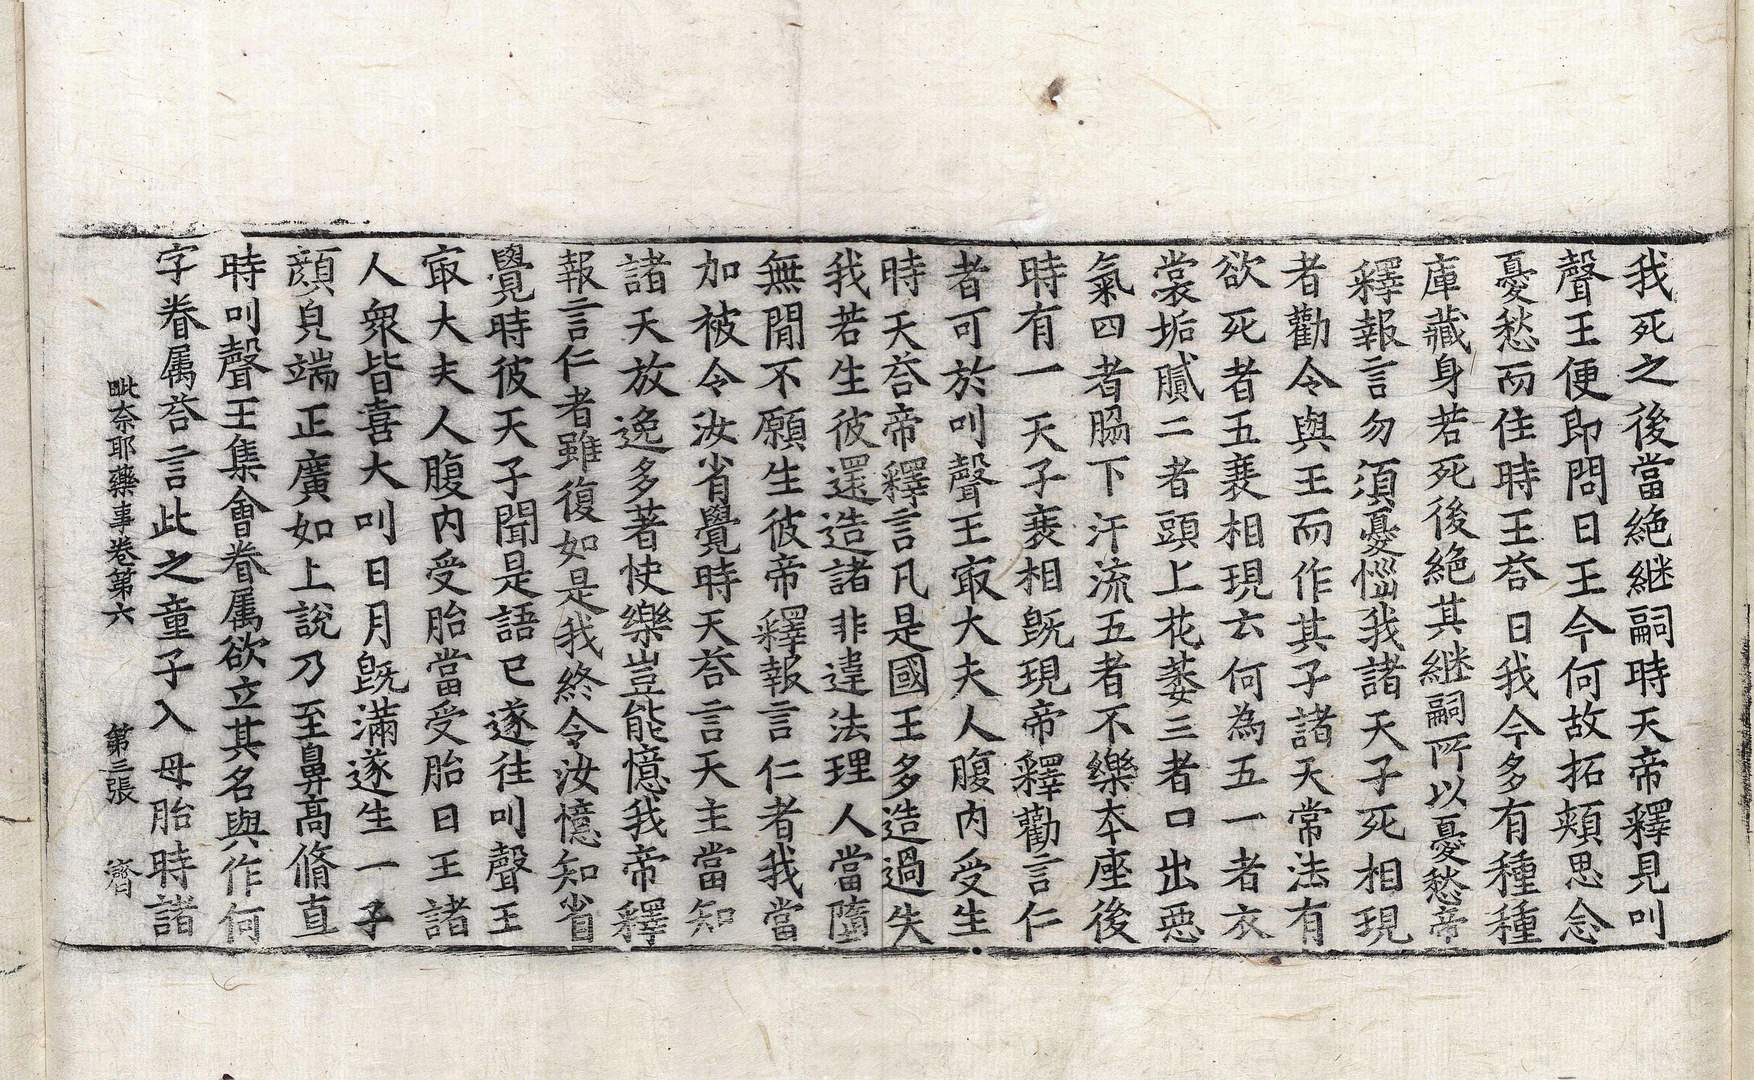 我死之後當絶継嗣時天帝釋見叫
聲王便即問曰王今何故拓頰思念
憂愁而住時王荅曰我今多有種種
庫藏身若死後絶其継嗣所以憂愁帝
釋報言勿須憂惱我諸天子死相現
者勸令與王而作其子諸天常法有
欲死者五衰相現云何為五一者衣
裳垢膩二者頭上花萎三者口出惡
氣四者脇下汗流五者不樂本座後
時有一天子衰相既現帝釋勸言仁
者可於叫聲王㝡大夫人腹内受生
時天荅帝釋言凡是國王多造過失
我若生彼還造諸非違法理人當墮
無間不願生彼帝釋報言仁者我當
加被令汝省覺時天荅言天主當知
諸天放逸多著快樂豈能憶我帝釋
報言仁者雖復如是我終令汝憶知省
覺時彼天子聞是語已遂往叫聲王
㝡大夫人腹内受胎當受胎日王諸
人衆皆喜大叫日月既滿遂生一子
顔皃端正廣如上說乃至鼻高脩直
時叫聲王集會眷属欲立其名與作何
字眷属荅言此之童子入母胎時諸
毗奈耶藥事卷第六 第三張 濟